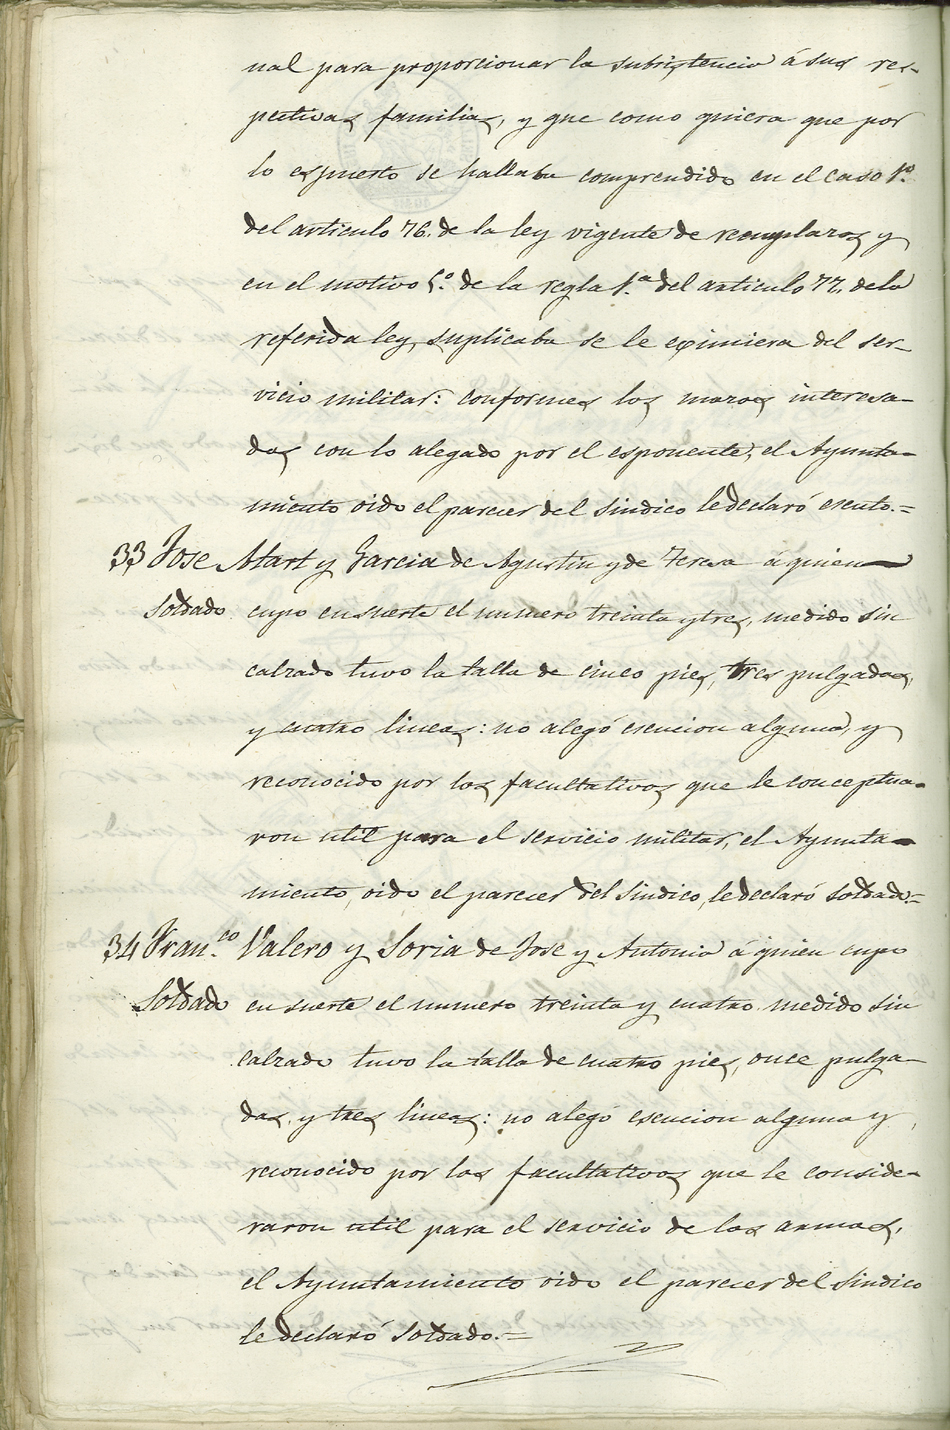 nal para proporcionar la subsistencia á sus res-
pectivas familias, y que como quiera que por
lo espuesto se hallaba comprendido en el caso 1º
del articulo 76. de la ley vigente de reemplazos y
en el motivo 5º. de la regla 1.ª del articulo 77. de la
referida ley, suplicaba se le eximiera del ser-
vicio militar: conformes los mozos interesa-
dos con lo alegado por el esponente, el Ayunta-
miento oido el parecer del Sindico le declaró esento.=
33 Jose Mart y Garcia de Agustin y de Teresa á quien
Soldado cupo en suerte el numero treinta y tres, medido sin
calzado tuvo la talla de cinco pies, tres pulgadas,
y cuatro lineas: no alegó esencion alguna, y
reconocido por los facultativos que le conceptua-
ron util para el servicio militar, el Ayunta-
miento, oido el parecer del Sindico, le declaró soldado.=
34 Fran.co Valero y Soria de Jose y Antonia á quien cupo
Soldado en suerte el numero treinta y cuatro medido sin
calzado tuvo la talla de cuatro pies, once pulga-
das, y tres lineas: no alegó esencion alguna y
reconocido por los facultativos que le conside-
raron util para el servicio de las armas,
el Ayuntamiento oido el parecer del Sindico
le declaró Soldado.=